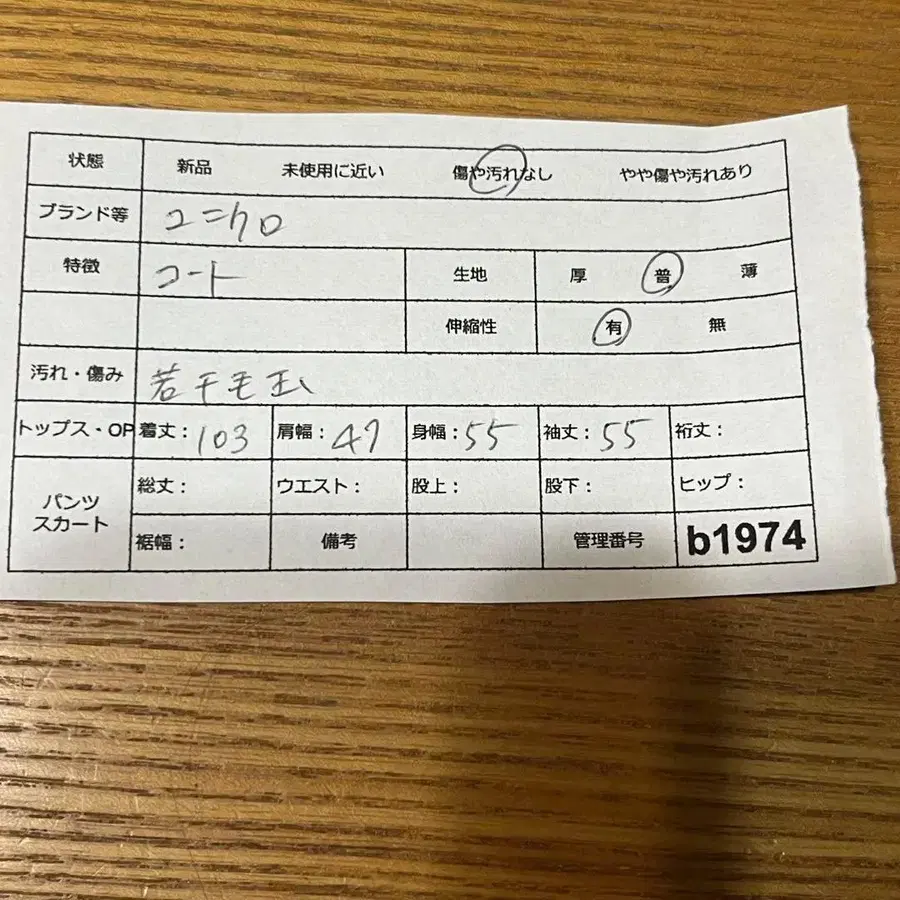 状態 新品 未使用に近い 傷や汚れなし やや傷や汚れあり
ブランド等 ユニクロ
特徴 コート 生地 厚 普 薄
伸縮性 有 無
汚れ・傷み 若干毛玉
トップス・OP 着丈：103 肩幅：47 身幅：55 袖丈：55 裄丈：
パンツ スカート 総丈： ウエスト： 股上： 股下： ヒップ：
裾幅： 備考 管理番号 b1974